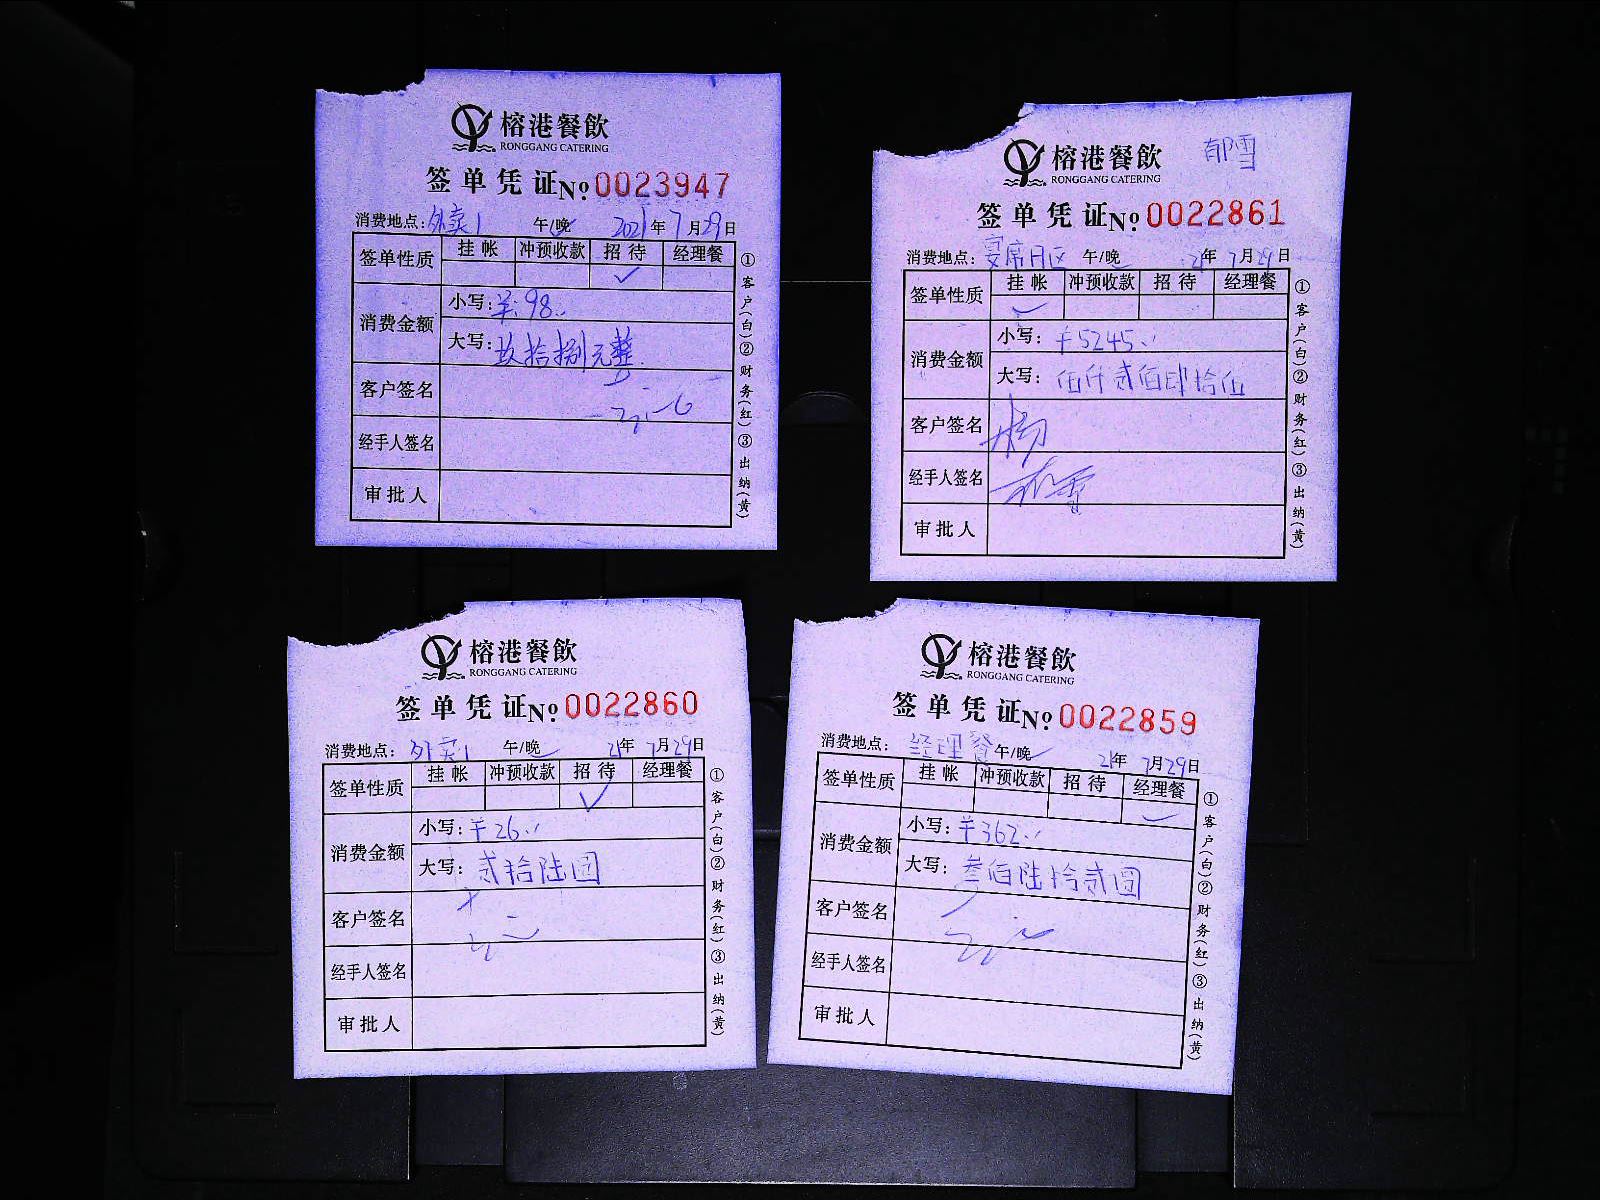 榕港餐飲
RONGGANG CATERING
签单凭证No 0023947
消费地点: 外卖1 午/晚 2021年7月29日
签单性质 挂帐 冲预收款 招待 经理餐
✓
消费金额 小写: ¥98..
大写: 玖拾捌元整
客户签名
经手人签名
审批人
①客户(白)②财务(红)③出纳(黄)
榕港餐飲 郁雪
RONGGANG CATERING
签单凭证No 0022861
消费地点: 宴席月区 午/晚 21年7月29日
签单性质 挂帐 冲预收款 招待 经理餐
✓
消费金额 小写: ¥5245..
大写: 伍仟贰佰肆拾伍
客户签名 杨
经手人签名
审批人
①客户(白)②财务(红)③出纳(黄)
榕港餐飲
RONGGANG CATERING
签单凭证No 0022860
消费地点: 外卖1 午/晚 21年7月29日
签单性质 挂帐 冲预收款 招待 经理餐
✓
消费金额 小写: ¥26..
大写: 贰拾陆圆
客户签名
经手人签名
审批人
①客户(白)②财务(红)③出纳(黄)
榕港餐飲
RONGGANG CATERING
签单凭证No 0022859
消费地点: 经理餐 午/晚 21年7月29日
签单性质 挂帐 冲预收款 招待 经理餐
✓
消费金额 小写: ¥362..
大写: 叁佰陆拾贰圆
客户签名
经手人签名
审批人
①客户(白)②财务(红)③出纳(黄)